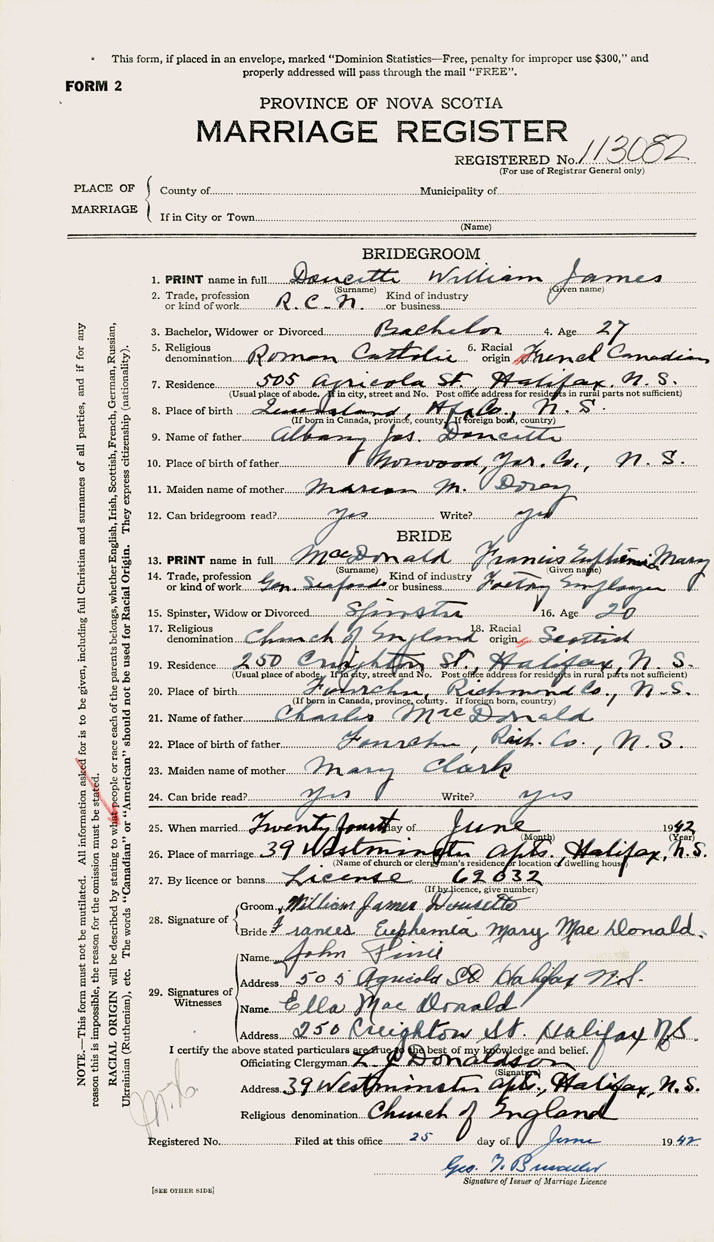 This form, if placed in an envelope, marked "Dominion Statistics—Free, penalty for improper use $300," and
properly addressed will pass through the mail "FREE".
FORM 2
PROVINCE OF NOVA SCOTIA
MARRIAGE REGISTER
REGISTERED No. 113082
(For use of Registrar General only)
PLACE OF MARRIAGE
County of Municipality of
If in City or Town
(Name)
BRIDEGROOM
1. PRINT name in full Doucette William James
(Surname) (Given name)
2. Trade, profession or kind of work R.C.N. Kind of industry or business
3. Bachelor, Widower or Divorced Bachelor 4. Age 27
5. Religious denomination Roman Catholic 6. Racial origin French Canadian
7. Residence 505 Agricola St, Halifax, N.S.
(Usual place of abode. If in city, street and No. Post office address for residents in rural parts not sufficient)
8. Place of birth Queensland, Hfx Co., N.S.
(If born in Canada, province, county. If foreign born, country)
9. Name of father Albany Jas. Doucette
10. Place of birth of father Norwood, Yar. Co., N.S.
11. Maiden name of mother Marion M. Dorey
12. Can bridegroom read? yes Write? yes
BRIDE
13. PRINT name in full MacDonald Francis Euphemia Mary
(Surname) (Given name)
14. Trade, profession or kind of work Gen. Seafoods Kind of industry or business Factory Employee
15. Spinster, Widow or Divorced Spinster 16. Age 20
17. Religious denomination Church of England 18. Racial origin Scottish
19. Residence 250 Creighton St., Halifax, N.S.
(Usual place of abode. If in city, street and No. Post office address for residents in rural parts not sufficient)
20. Place of birth Fourchu, Richmond Co., N.S.
(If born in Canada, province, county. If foreign born, country)
21. Name of father Charles MacDonald
22. Place of birth of father Fourchu, Rich. Co., N.S.
23. Maiden name of mother Mary Clark
24. Can bride read? yes Write? yes
25. When married Twenty fourth day of June 1942
(Month) (Year)
26. Place of marriage 39 Westminster Apts., Halifax, N.S.
(Name of church or clergyman's residence or location of dwelling house)
27. By licence or banns License 62032
(If by licence, give number)
28. Signature of
Groom William James Doucette
Bride Frances Euphemia Mary MacDonald.
29. Signatures of Witnesses
Name John
Address 505 Agricola St Halifax N.S.
Name Ella MacDonald
Address 250 Creighton St. Halifax N.S.
I certify the above stated particulars are true to the best of my knowledge and belief.
Officiating Clergyman Donaldson
(Signature)
Address 39 Westminster Apts., Halifax, N.S.
Religious denomination Church of England
Registered No. Filed at this office 25 day of June 1942
Geo.
Signature of Issuer of Marriage Licence
[SEE OTHER SIDE]
NOTE.—This form must not be mutilated. All information asked for is to be given, including full Christian and surnames of all parties, and if for any
reason this is impossible, the reason for the omission must be stated.
RACIAL ORIGIN will be described by stating to what people or race each of the parents belongs, whether English, Irish, Scottish, French, German, Russian,
Ukrainian (Ruthenian), etc. The words "Canadian" or "American" should not be used for Racial Origin. They express citizenship (nationality).